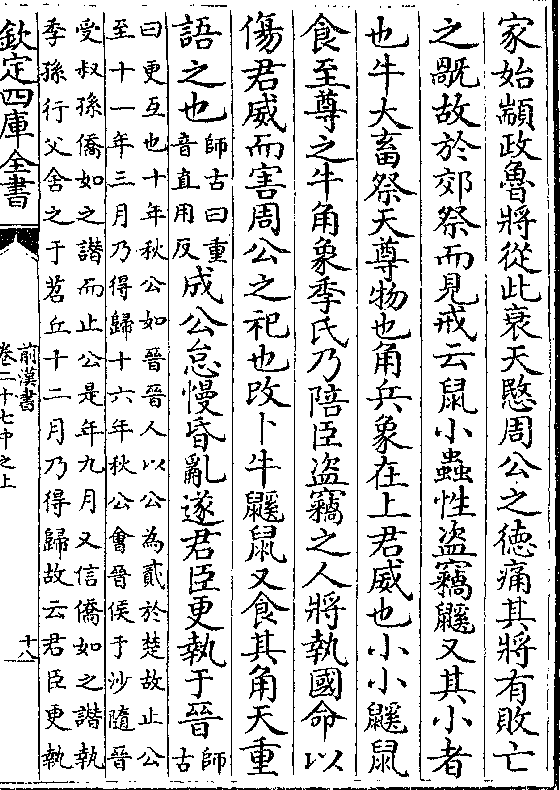 家始顓政魯將從此衰天愍周公之徳痛其將有敗亡
之𤼵故於郊祭而見戒云鼠小蟲性盗竊鼷又其小者
也牛大畜祭天尊物也角兵象在上君威也小小鼷鼠
食至尊之牛角象季氏乃陪臣盗竊之人將執國命以
傷君威而害周公之祀也改卜牛鼷鼠又食其角天重
語之也師古曰重音直用反成公怠慢昏亂遂君臣更執于晉師古
曰更互也十年秋公如晉晉人以公為貳於楚故止公
至十一年三月乃得歸十六年秋公會晉侯于沙隨晉
受叔孫僑如之譖而止公是年九月又信僑如之譖執
季孫行父舍之于苕丘十二月乃得歸故云君臣更執
欽定四庫全書
前漢書
卷二十七中之上
十八